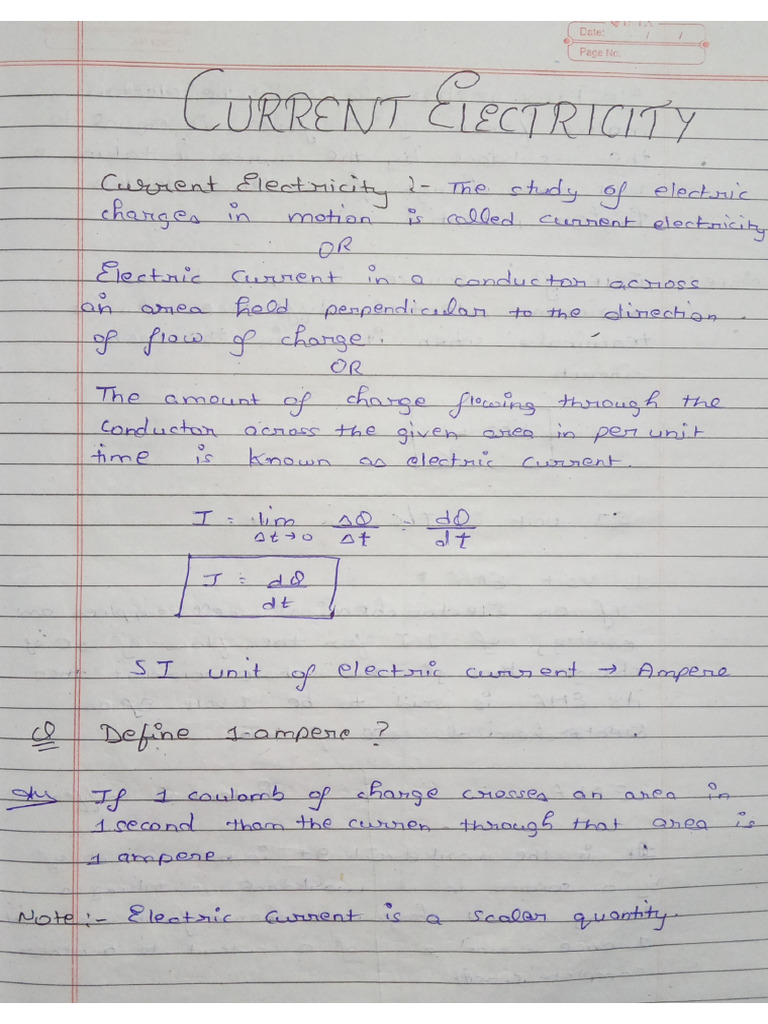 Date: / /
Page No.
CURRENT ELECTRICITY
Current Electricity :- The study of electric
charges in motion is called current electricity
OR
Electric current in a conductor across
an area held perpendicular to the direction
of flow of charge.
OR
The amount of charge flowing through the
conductor across the given area in per unit
time is known as electric current.
I = lim Δt→0 ΔQ/Δt = dQ/dt
I = dQ/dt
SI unit of electric current → Ampere
Q Define 1-ampere?
Ans If 1 coulomb of charge crosses an area in
1 second tham the curren through that area is
1 ampere.
Note:- Electric current is a scalar quantity.